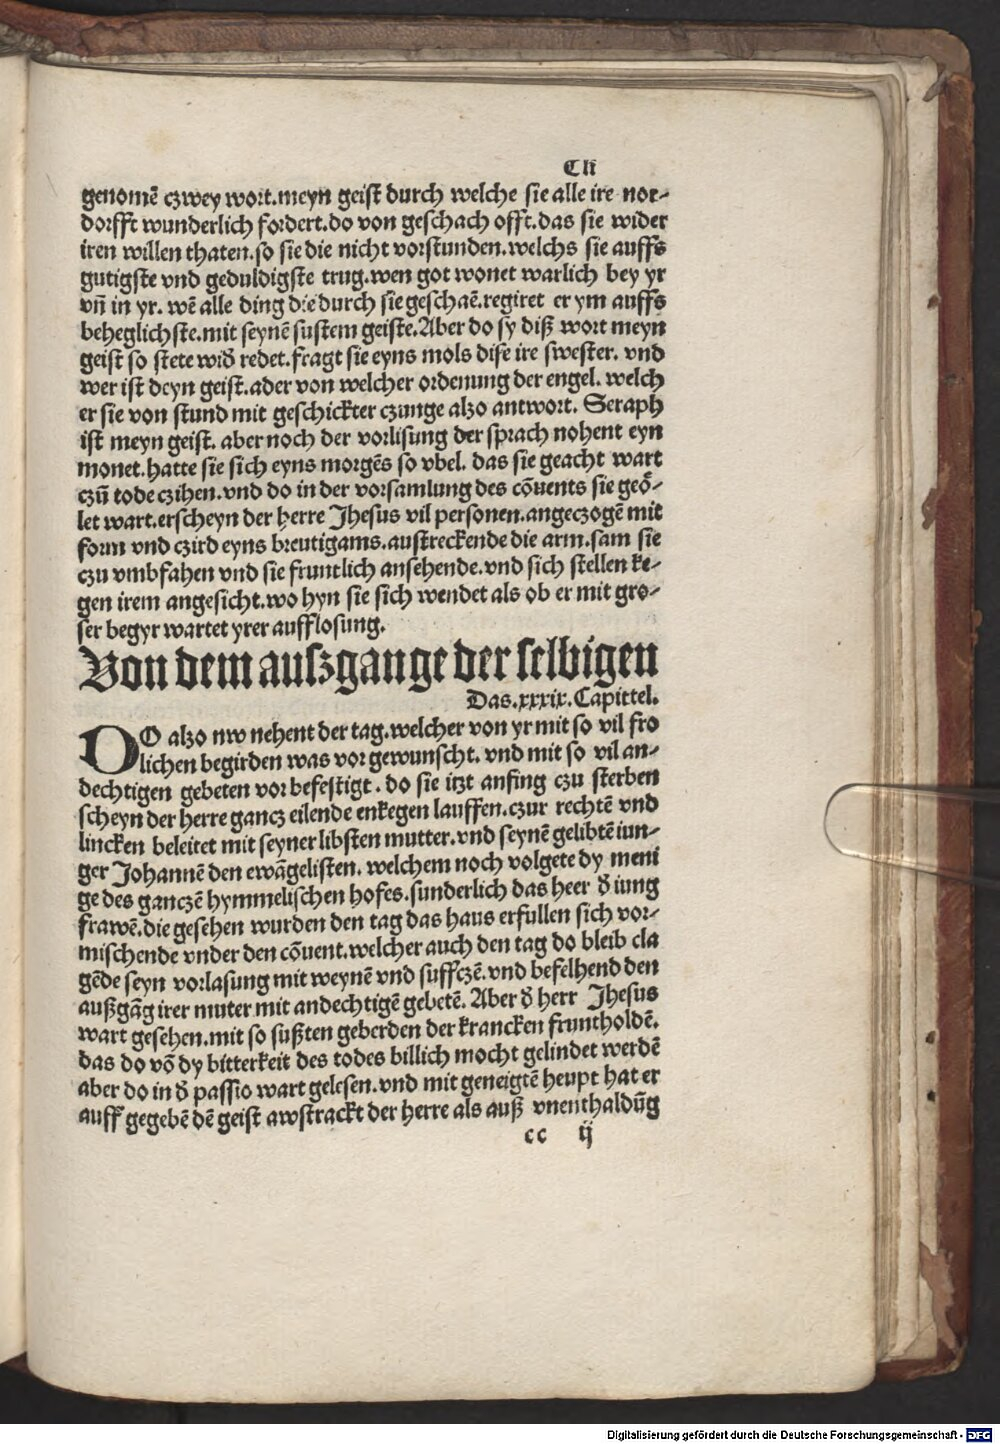 Cli
genomē czwey wort.meyn geist durch welche sie alle ire nor⸗
dorfft wunderlich fordert.do von geschach offt.das sie wider
iren willen thaten.so sie die nicht vorstunden.welchs sie auffs
gutigste vnd geduldigste trug.wen got wonet warlich bey yr
vn̄ in yr. wē alle ding die durch sie geschaē.regiret er ym auffs
beheglichste.mit seynē sustem geiste.Aber do sy diß wort meyn
geist so stete wid̄ redet.fragt sie eyns mols dise ire swester. vnd
wer ist deyn geist.ader von welcher ordenung der engel. welch
er sie von stund mit geschickter czunge alzo antwort. Seraph
ist meyn geist. aber noch der vorlisung der sprach nohent eyn
monet.hatte sie sich eyns morgēs so vbel. das sie geacht wart
czū tode czihen.vnd do in der vorsamlung des cōuents sie geö⸗
let wart.erscheyn der herre Jhesus vil personen.angeczogē mit
form vnd czird eyns breutigams.austreckende die arm.sam sie
czu vmbfahen vnd sie fruntlich ansehende.vnd sich stellen ke⸗
gen irem angesicht.wo hyn sie sich wendet als ob er mit gro⸗
ser begyr wartet yrer aufflosung.
Von dem auszgange der selbigen
Das.xxxix.Capittel.
DO alzo nw nehent der tag.welcher von yr mit so vil fro
lichen begirden was vor gewunscht. vnd mit so vil an⸗
dechtigen gebeten vor befestigt. do sie itzt anfing czu sterben
scheyn der herre gancz eilende enkegen lauffen.czur rechtē vnd
lincken beleitet mit seyner libsten mutter.vnd seynē gelibtē iun⸗
ger Johannē den ewāgelisten. welchem noch volgete dy meni
ge des ganczē hymmelischen hofes.sunderlich das heer d̄ iung
frawē.die gesehen wurden den tag das haus erfullen sich vor⸗
mischende vnder den cōuent.welcher auch den tag do bleib cla
gēde seyn vorlasung mit weynē vnd suffczē.vnd befelhend den
außgāg irer muter mit andechtigē gebetē. Aber d̄ herr Jhesus
wart gesehen.mit so sußten geberden der krancken fruntholdē.
das do vō dy bitterkeit des todes billich mocht gelindet werdē
aber do in d̄ passio wart gelesen.vnd mit geneigtē heupt hat er
auff gegebē dē geist awstrackt der herre als auß vnenthaldūg
cc ij
Digitalisierung gefördert durch die Deutsche Forschungsgemeinschaft - DFG